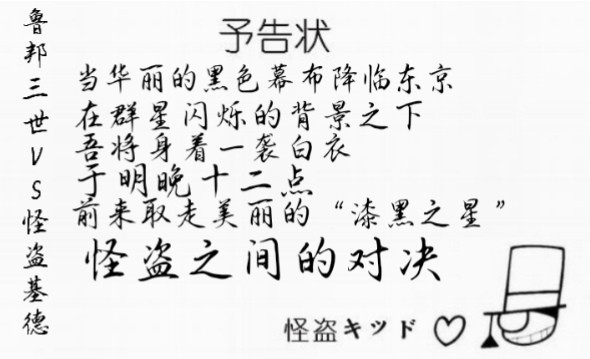 鲁邦三世VS怪盗基德
予告状
当华丽的黑色幕布降临东京
在群星闪烁的背景之下
吾将身着一袭白衣
于明晚十二点
前来取走美丽的“漆黑之星”
怪盗之间的对决
怪盗キッド♡